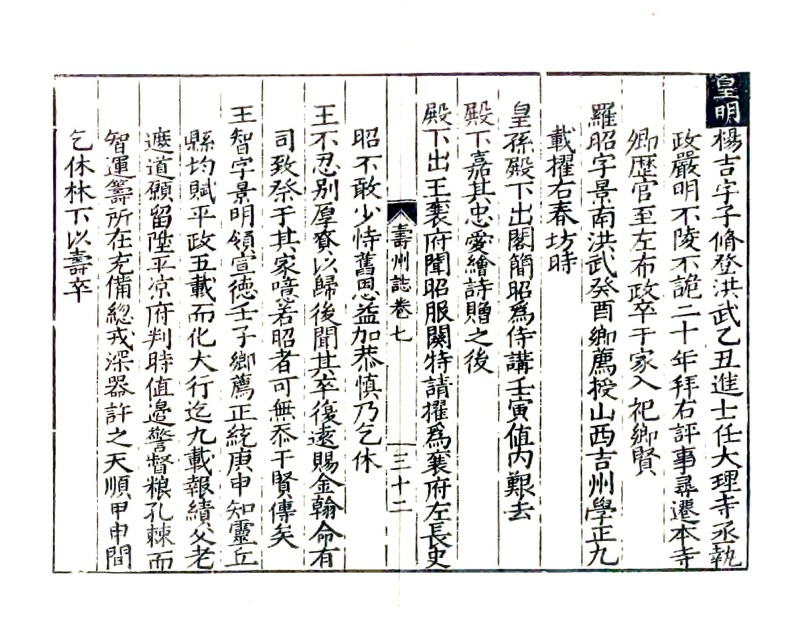 皇明楊吉字子脩登洪武乙丑進士任大理寺丞執
政嚴明不陵不詭二十年拜右評事尋遷本寺
卿歷官至左布政卒于家入祀鄉賢
羅昭字景南洪武癸酉鄉薦授山西吉州學正九
載擢右春坊時
皇孫殿下出閣簡昭爲侍講壬寅值内艱去
殿下嘉其忠愛繪詩贈之後
殿下出王襄府聞昭服闋特請擢爲襄府左長史
壽州誌卷七
三十二
昭不敢少恃舊恩益加恭慎乃乞休
王不忍别厚賚以歸後聞其卒復遠賜金翰命有
司致祭于其家噫若昭者可無忝于賢傳矣
王智字景明領宣德壬子鄉薦正統庚申知靈丘
縣均賦平政五載而化大行迄九載報績父老
遮道願留陞平凉府判時值邊警督粮孔棘而
智運籌所在充備總戎深器許之天順甲申間
乞休林下以壽卒